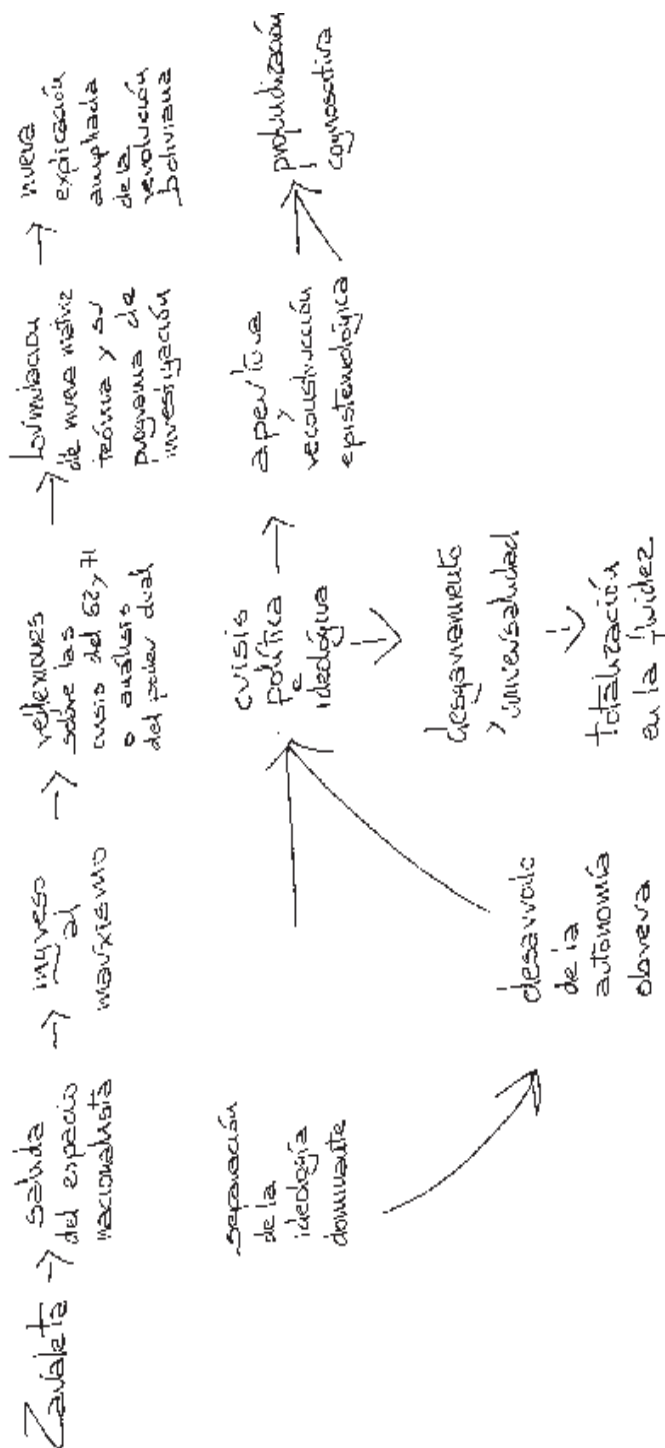 Zavaleta → salida
del espacio
nacionalista
→ ingreso
al
marxismo
→ reflexiones
sobre las
crisis del 52 y 71
o análisis
del poder dual
→ formulación
de nueva matriz
teórica y su
programa de
investigación
→ nueva
explicación
ampliada
de la
revolución
boliviana
separación
de la
ideología
dominante
crisis
política
e
ideológica
→ apertura
y
reconstrucción
epistemológica
profundización
cognoscitiva
desarrollo
de la
autonomía
obrera
desgarramiento
y universalidad
totalización
en la fluidez